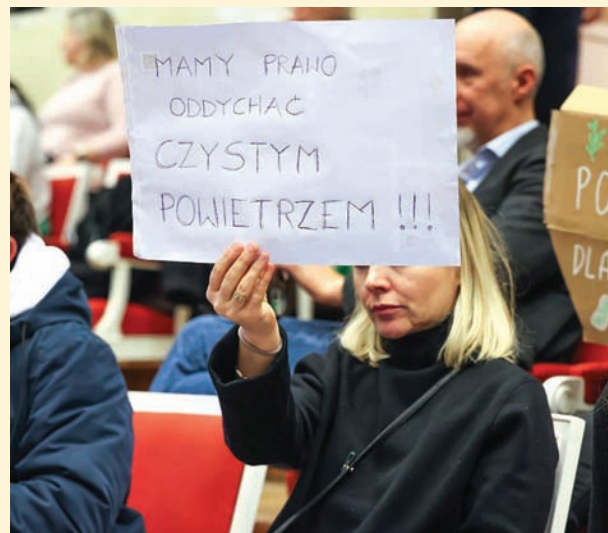 MAMY PRAWO
ODDYCHAĆ
CZYSTYM
POWIETRZEM !!!
DLA